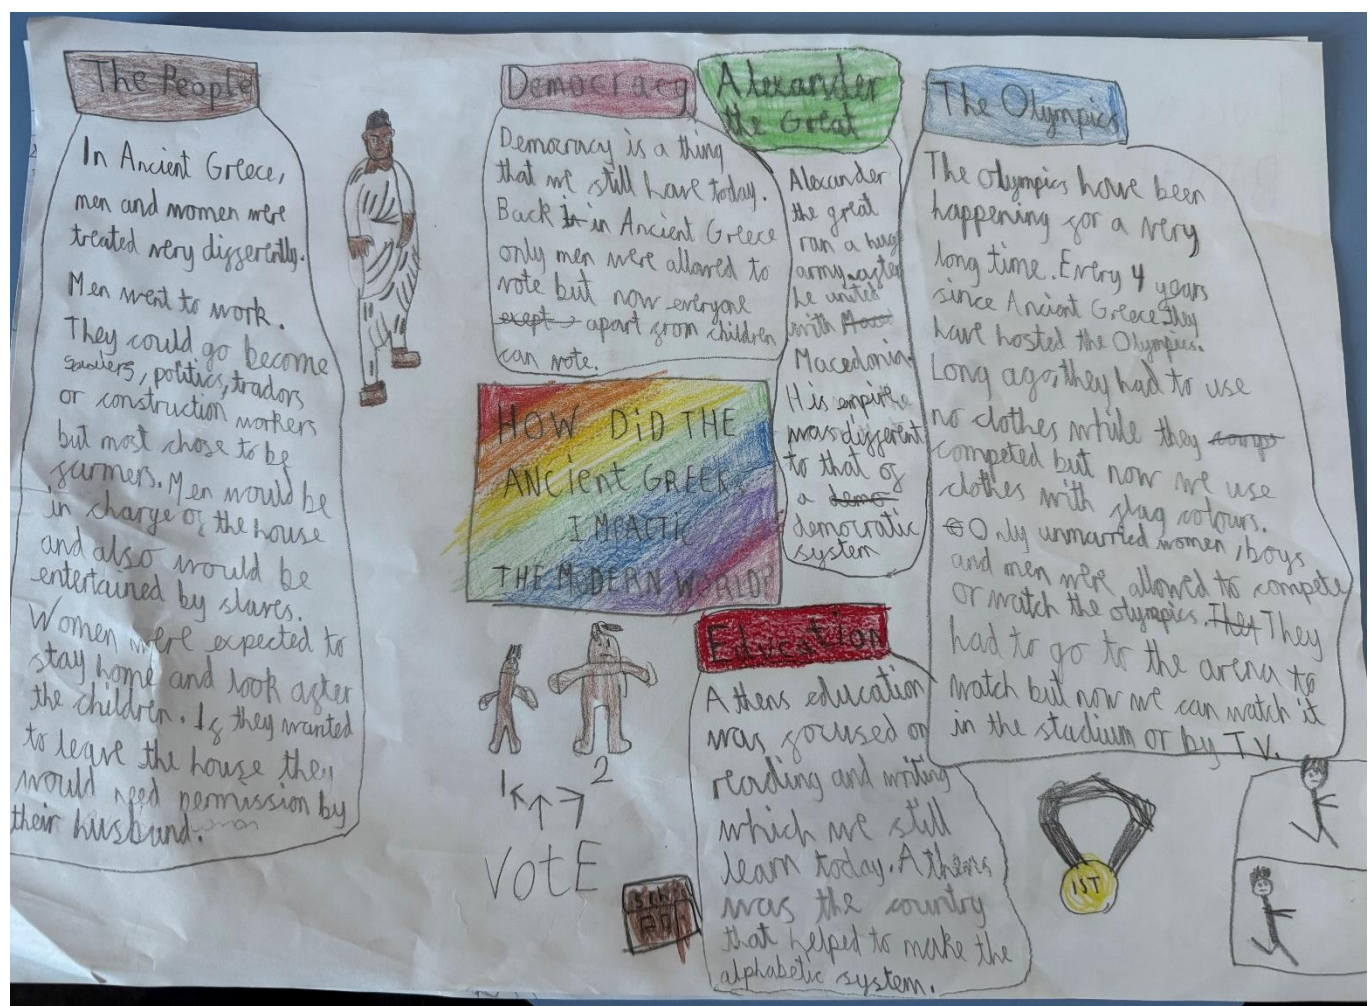 The People
In Ancient Greece,
men and women were
treated very differently.
Men went to work.
They could go become
, politics, tradors
or construction workers
but most chose to be
farmers. Men would be
in charge of the house
and also would be
entertained by slaves.
Women were expected to
stay home and look after
the children. If they wanted
to leave the house they
would need permission by
their husband.
Democracy
Democracy is a thing
that we still have today.
Back in in Ancient Greece
only men were allowed to
vote but now everyone
exept apart from children
can vote.
HOW DiD THE
ANCient GREEK
IMPACT
THE MODERN WORLD?
1 2
VotE
Alexander
the Great
Alexander
the great
ran a huge
army after
he united
with
Macedonia.
His empire
was different
to that of
a demo
democratic
system
Education
Athens education
was focused on
reading and writing
which we still
learn today. Athens
was the country
that helped to make the
alphabetic system.
The Olympics
The Olympics have been
happening for a very
long time. Every 4 years
since Ancient Greece they
have hosted the Olympics.
Long ago, they had to use
no clothes while they comp
competed but now we use
clothes with flag colours.
Only unmarried women, boys
and men were allowed to compete
or watch the olympics. They
had to go to the arena to
watch but now we can watch it
in the stadium or by TV.
1ST